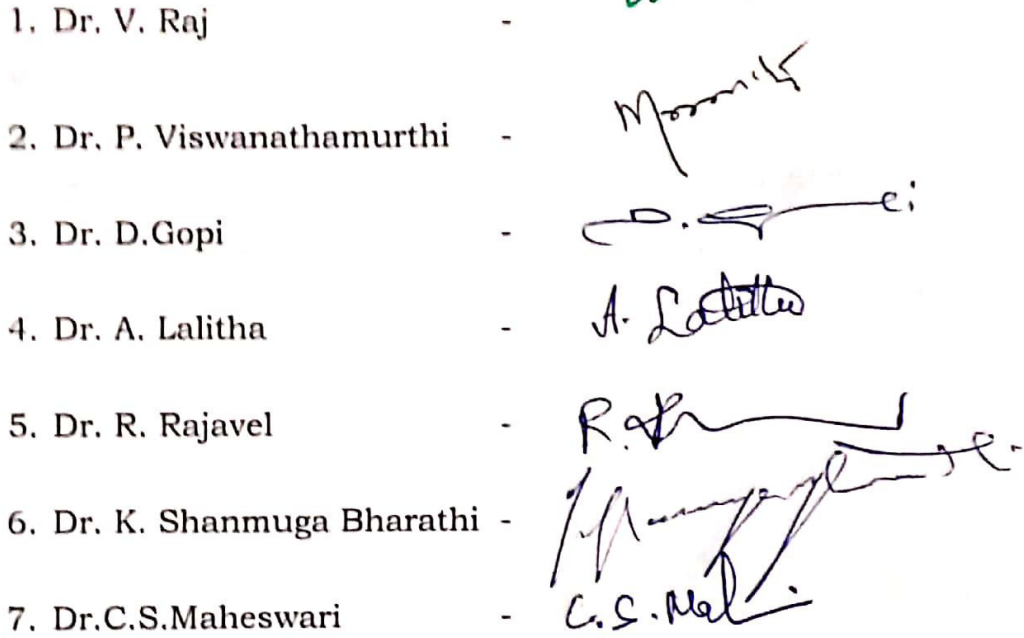 1. Dr. V. Raj -
2. Dr. P. Viswanathamurthi -
3. Dr. D.Gopi -
4. Dr. A. Lalitha - A. Lalitha
5. Dr. R. Rajavel - R.
6. Dr. K. Shanmuga Bharathi -
7. Dr.C.S.Maheswari - C.S.